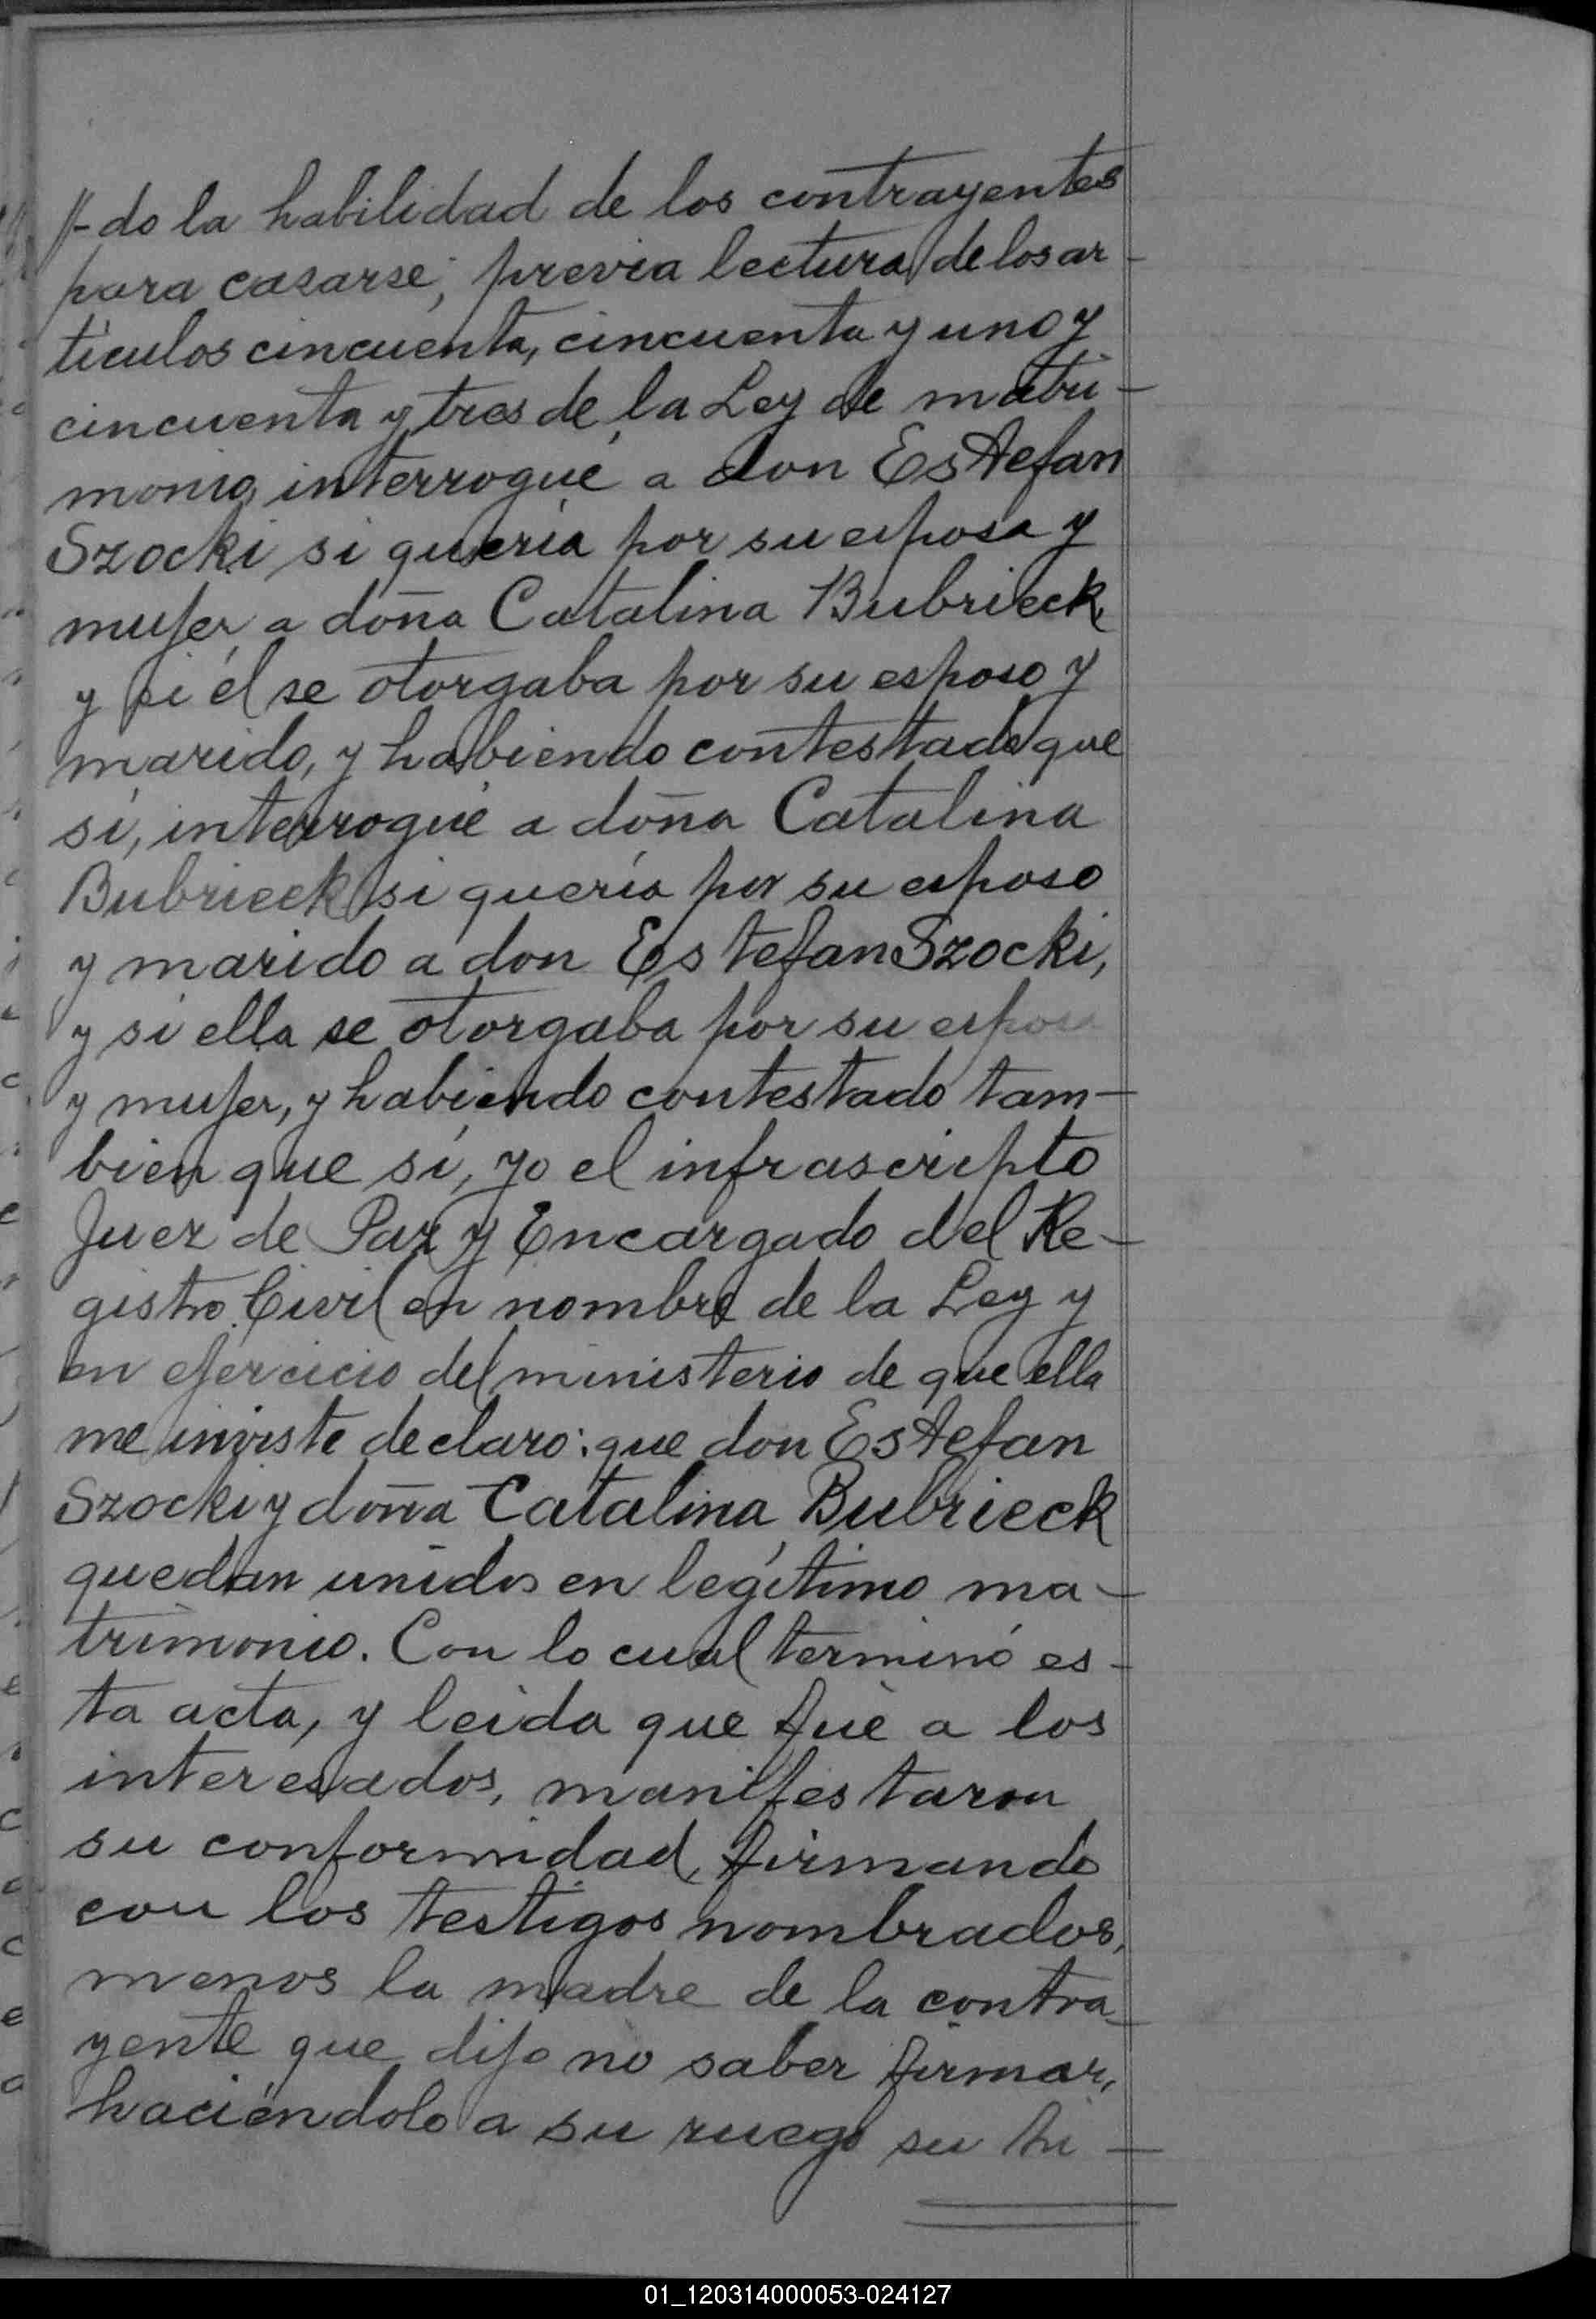 //-do la habilidad de los contrayentes
para casarse; previa lectura de los ar-
tículos cincuenta, cincuenta y uno y
cincuenta y tres de la Ley de matri-
monio, interrogué a don Estefan
Szocki si quería por su esposa y
mujer a doña Catalina Bubrieck
y si él se otorgaba por su esposo y
marido, y habiendo contestado que
sí, interrogué a doña Catalina
Bubrieck si quería por su esposo
y marido a don Estefan Szocki,
y si ella se otorgaba por su esposa
y mujer, y habiendo contestado tam-
bien que sí, yo el infrascripto
Juez de Paz y Encargado del Re-
gistro Civil en nombre de la Ley y
en ejercicio del ministerio de que ella
me inviste declaro: que don Estefan
Szocki y doña Catalina Bubrieck
quedan unidos en legítimo ma-
trimonio. Con lo cual terminó es-
ta acta, y leida que fué a los
interesados, manifestaron
su conformidad, firmando
con los testigos nombrados,
menos la madre de la contra-
yente que dijo no saber firmar,
haciéndolo a su ruego su hi-
01_120314000053-024127